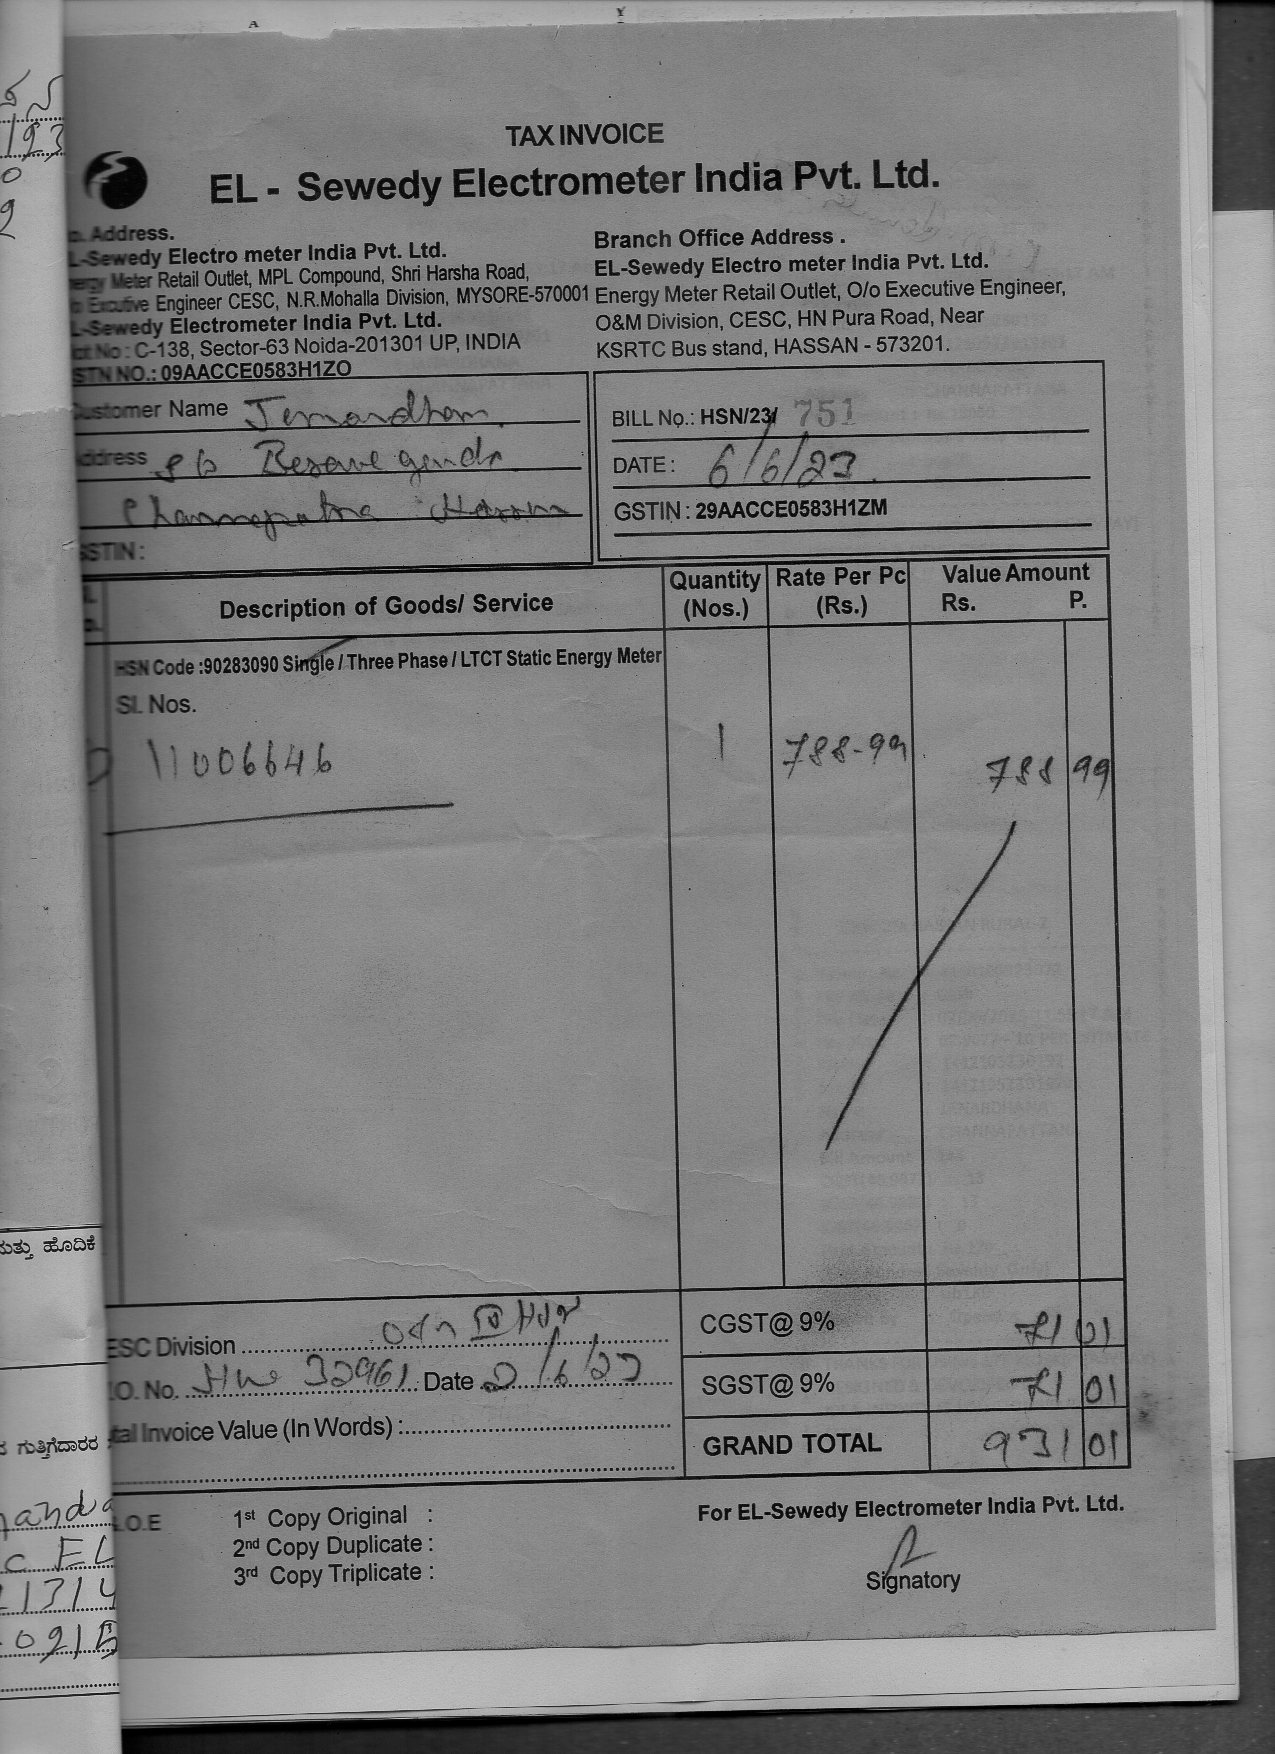 A
Y
123
TAX INVOICE
EL - Sewedy Electrometer India Pvt. Ltd.
Address.
L-Sewedy Electro meter India Pvt. Ltd.
Meter Retail Outlet, MPL Compound, Shri Harsha Road,
Executive Engineer CESC, N.R.Mohalla Division, MYSORE-570001
L-Sewedy Electrometer India Pvt. Ltd.
No : C-138, Sector-63 Noida-201301 UP, INDIA
STN NO.: 09AACCE0583H1ZO
Branch Office Address .
EL-Sewedy Electro meter India Pvt. Ltd.
Energy Meter Retail Outlet, O/o Executive Engineer,
O&M Division, CESC, HN Pura Road, Near
KSRTC Bus stand, HASSAN - 573201.
ustomer Name
ddress
STIN :
BILL No.: HSN/23/ 751
DATE : 6/6/23
GSTIN : 29AACCE0583H1ZM
Description of Goods/ Service
Quantity (Nos.)
Rate Per Pc (Rs.)
Value Amount
Rs. P.
HSN Code :90283090 Single / Three Phase / LTCT Static Energy Meter
SI. Nos.
11006646 1 788-99 788 99
ESC Division
.O. No. 32961 Date 2/6/23
tal Invoice Value (In Words) :
CGST@ 9% 71 01
SGST@ 9% 71 01
GRAND TOTAL 931 01
.O.E
1st Copy Original :
2nd Copy Duplicate :
3rd Copy Triplicate :
For EL-Sewedy Electrometer India Pvt. Ltd.
Signatory
ಹೊದಿಕೆ
ಗುತ್ತಿಗೆದಾರರ